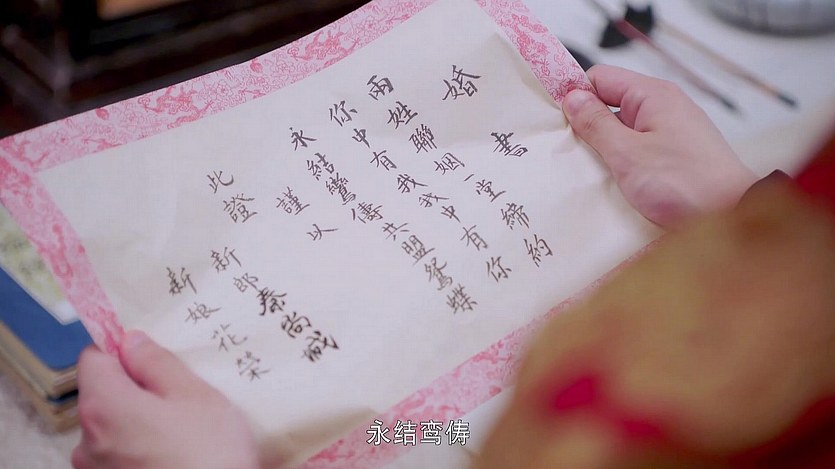 婚書
兩姓聯姻一堂締約
你中有我我中有你
永結鸞儔共盟鴛蝶
謹以
此證
新郎秦尚城
新娘花榮
永结鸾俦